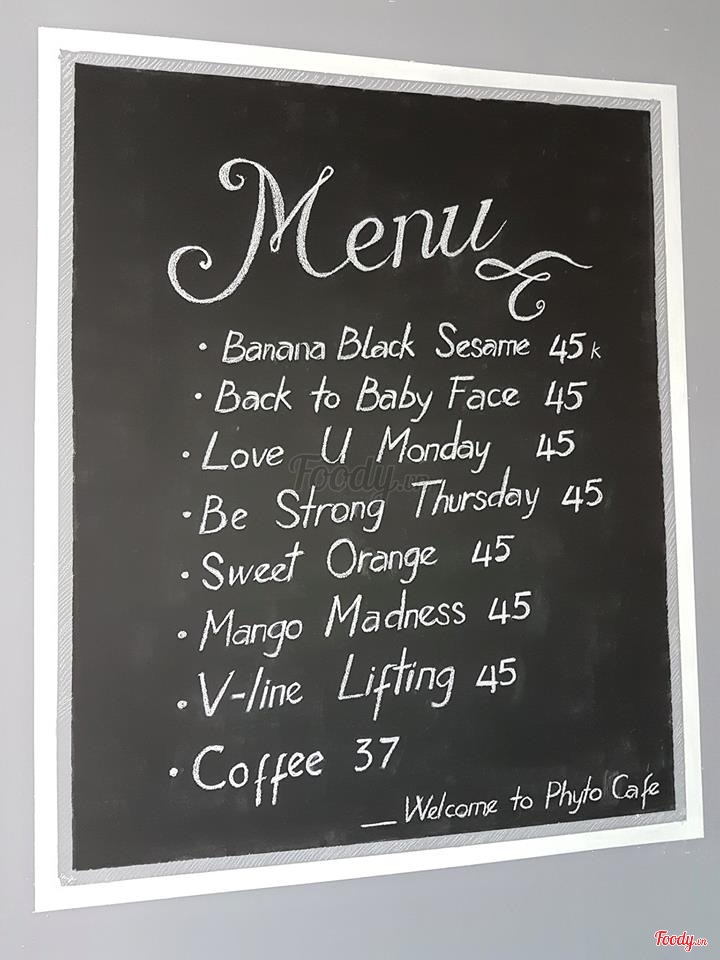 Menu
• Banana Black Sesame 45k
• Back to Baby Face 45
• Love U Monday 45
Foody.vn
• Be Strong Thursday 45
• Sweet Orange 45
• Mango Madness 45
• V-line Lifting 45
• Coffee 37
— Welcome to Phyto Cafe
Foody.vn